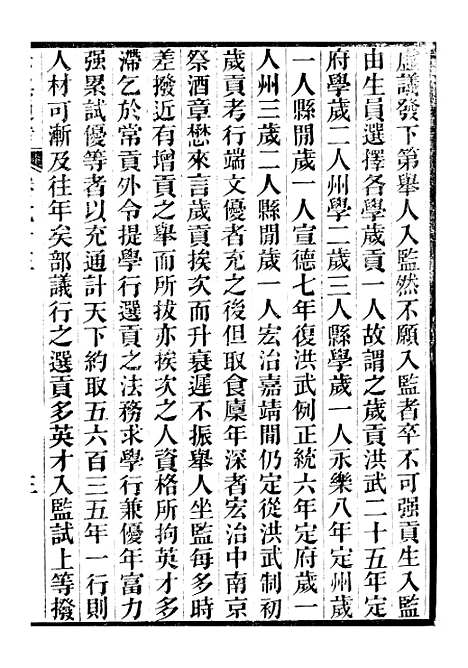 慮議發下第舉人入監然不願入監者卒不可强貢生入監
由生員選擇各學歲貢一人故謂之歲貢洪武二十五年定
府學歲二人州學二歲三人縣學歲一人永樂八年定州歲
一人縣閒歲一人宣德七年復洪武例正統六年定府歲一
人州三歲二人縣閒歲一人宏治嘉靖閒仍定從洪武制初
歲貢考行端文優者充之後但取食廩年深者宏治中南京
祭酒章懋來言歲貢挨次而升衰遲不振舉人坐監每多時
差撥近有增貢之舉而所拔亦挨次之人資格所拘英才多
滯乞於常貢外令提學行選貢之法務求學行兼優年富力
强累試優等者以充通計天下約取五六百三五年一行則
人材可漸及往年矣部議行之選貢多英才入監試上等撥
三